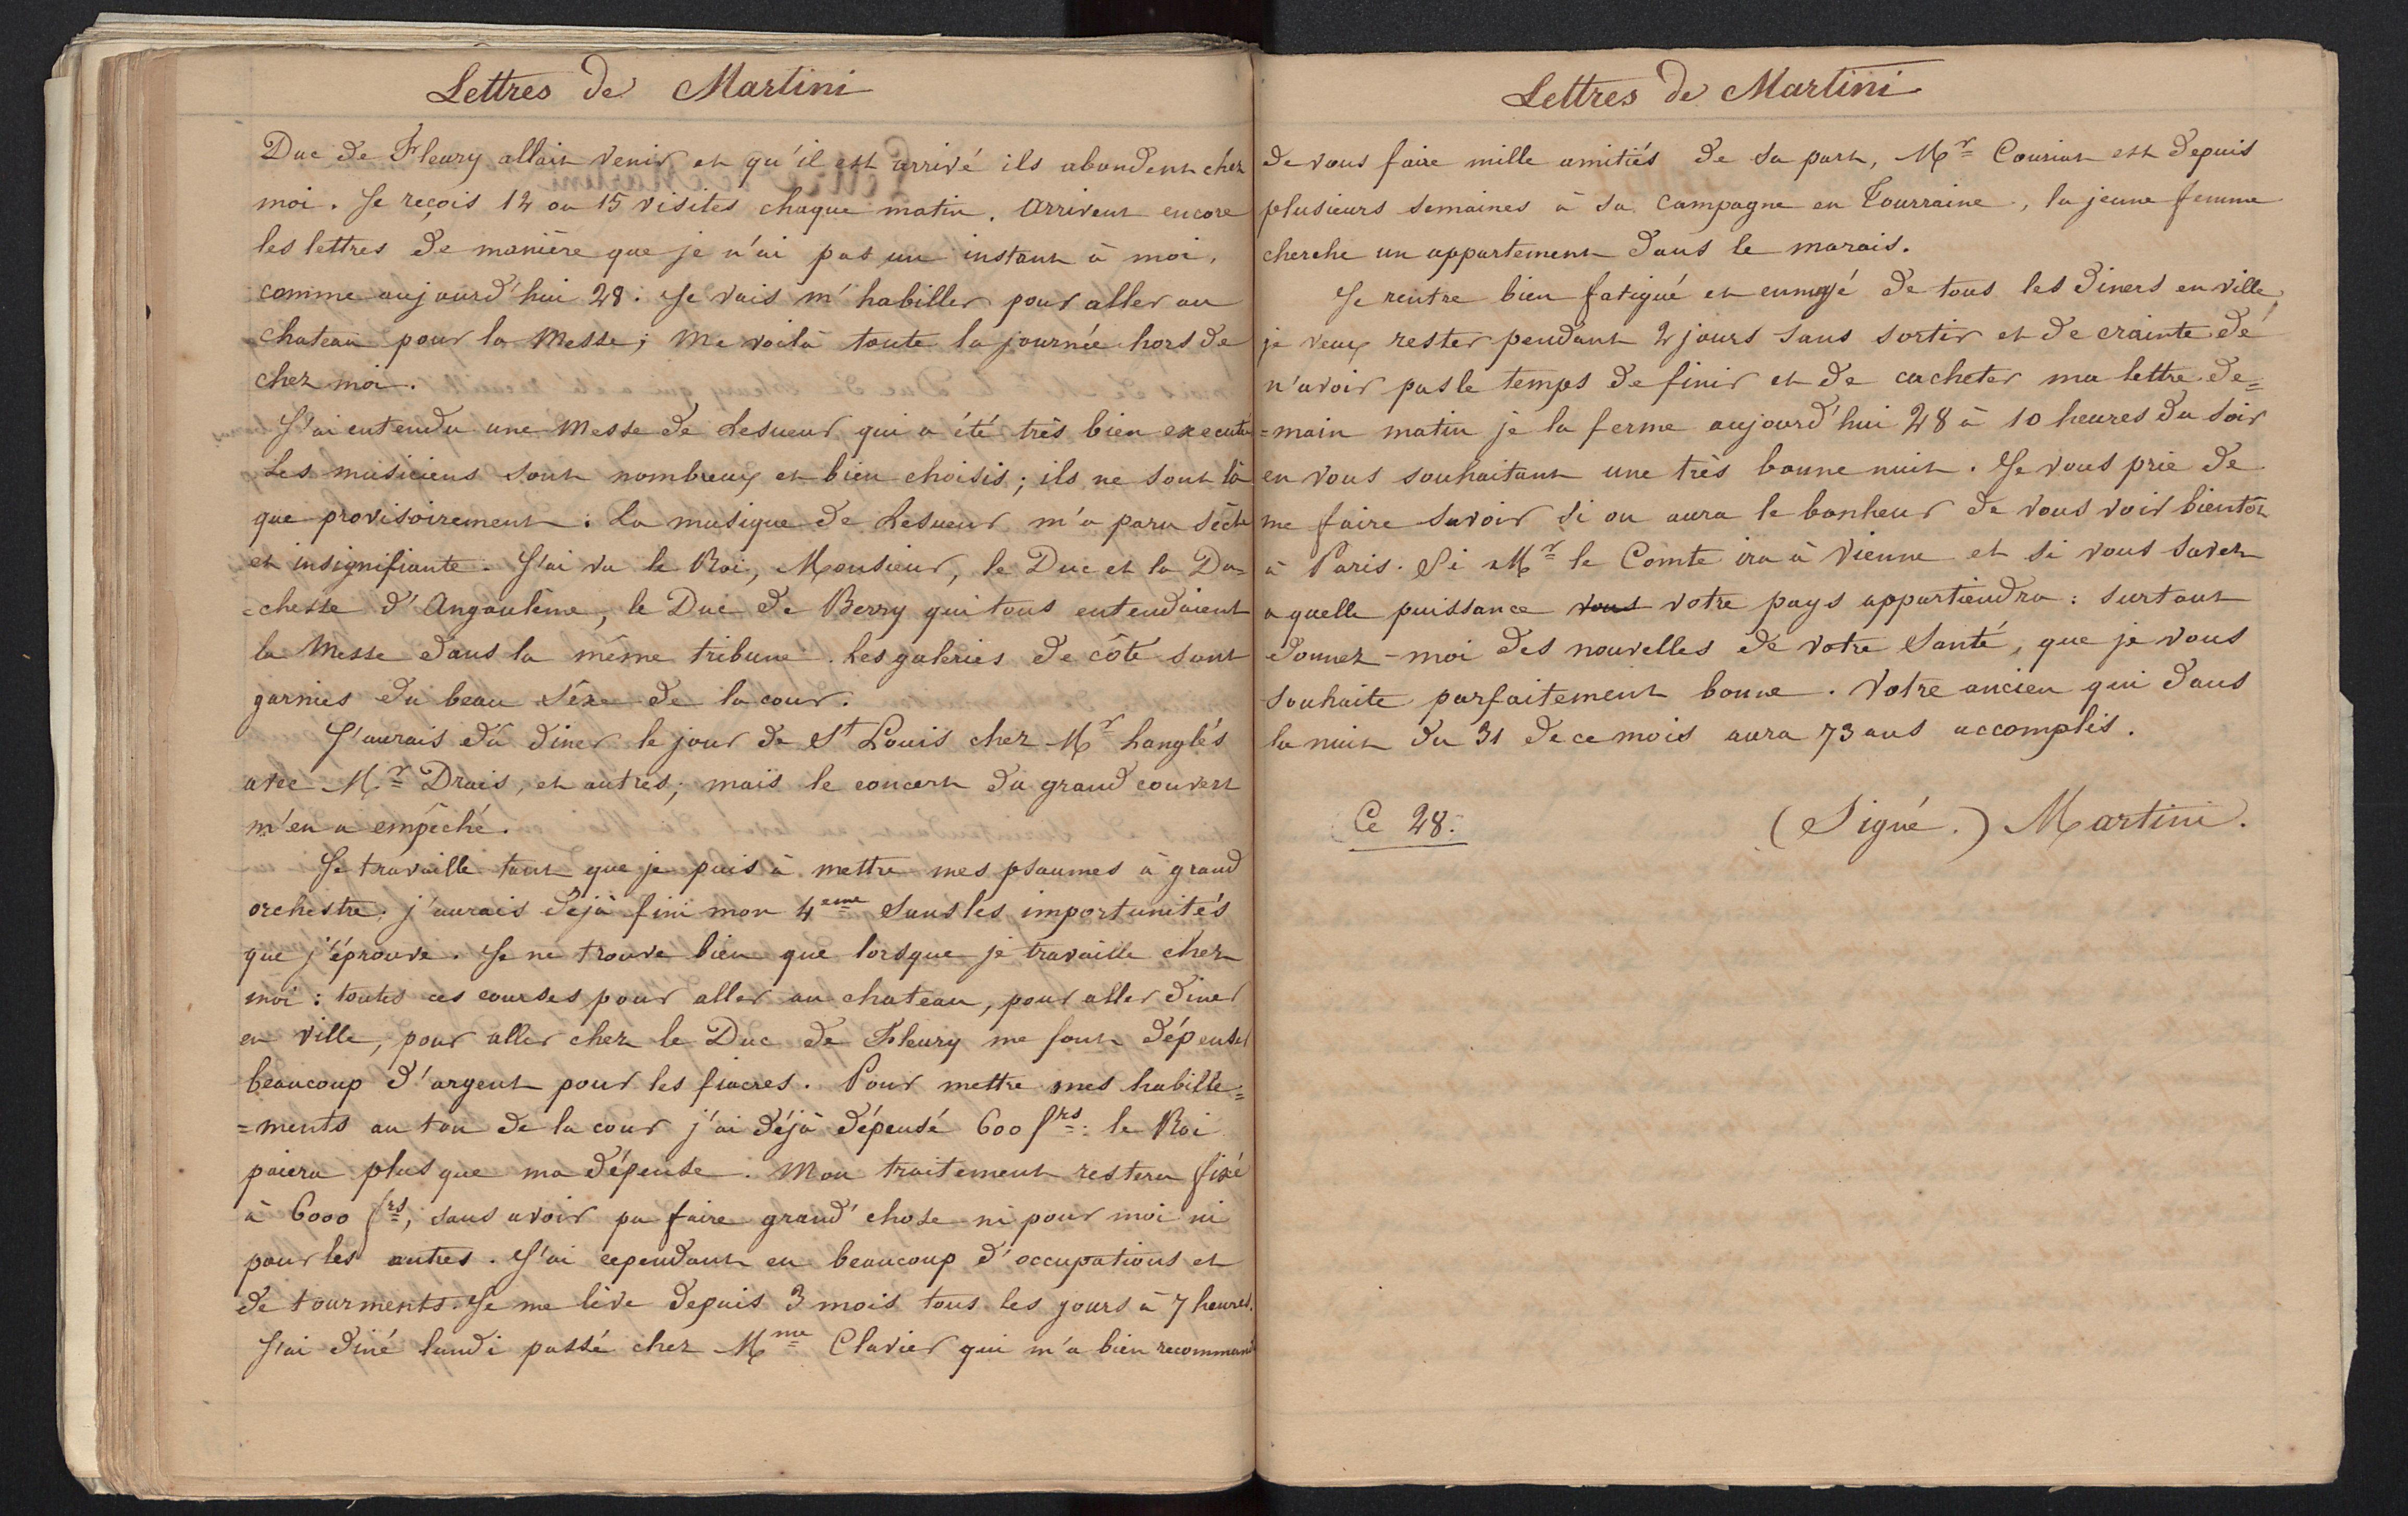 Lettres de Martini
Duc de Fleury allait venir et qu'il est arrivé ils abondent chez
moi. Je reçois 12 ou 15 visites chaque matin. Arrivent encore
les lettres de manière que je n'ai pas un instant à moi,
comme aujourd'hui 28. Je vais m'habiller pour aller au
chateau pour la Messe; Me voilà toute la journée hors de
chez moi.
J'ai entendu une Messe de Lesueur qui a été très bien executé
Les musiciens sont nombreux et bien choisis; ils ne sont là
que provisoirement: La musique de Lesueur m'a paru sèche
et insignifiante. J'ai vu le Roi, Monsieur, le Duc et la Du=
=chesse d'Angoulême, le Duc de Berry qui tous entendaient
la Messe dans la même tribune. Les galeries de côté sont
garnies du beau séxe de la cour.
J'aurais dû diner le jour de St Louis chez Mr Langlés
avec Mr Drais, et autres; mais le concert du grand couvert
m'en a empêché.
Je travaille tant que je puis à mettre mes psaumes à grand
orchestre. j'aurais déjà fini mon 4eme sans les importunités
que j'éprouve. Je ne trouve bien que lorsque je travaille chez
moi: toutes ces courses pour aller au chateau, pour aller diner
en ville, pour aller chez le Duc de Fleury me font dépenser
beaucoup d'argent pour les fiacres. Pour mettre mes habille=
=ments au ton de la cour j'ai déjà dépensé 600 frs: le Roi
paiera plus que ma dépense. Mon traitement restera fixé
à 6000 frs, sans avoir pu faire grand'chose ni pour moi ni
pour les autres. J'ai cependant eu beaucoup d'occupations et
de tourments. Je me lève depuis 3 mois tous les jours à 7 heures.
J'ai diné lundi passé chez Mme Clavier qui m'a bien recommandé
Lettres de Martini
de vous faire mille amitiés de sa part, Mr Couriat est depuis
plusieurs semaines à sa campagne en Tourraine, la jeune femme
cherche un appartement dans le marais.
Je rentre bien fatigué et ennuyé de tous les diners en ville,
je veux rester pendant 2 jours sans sortir et de crainte de
n'avoir pas le temps de finir et de cacheter ma lettre de=
=main matin je la ferme aujourd'hui 28 à 10 heures du soir
en vous souhaitant une très bonne nuit. Je vous prie de
me faire savoir si on aura le bonheur de vous voir bientôt
à Paris. Si Mr le Comte ira à Vienne et si vous savez
a quelle puissance vous votre pays appartiendra: surtout
donnez-moi des nouvelles de votre Santé, que je vous
souhaite parfaitement bonne. Votre ancien qui dans
la nuit du 31 de ce mois aura 73 ans accomplis.
Ce 28. (Signé.) Martini.